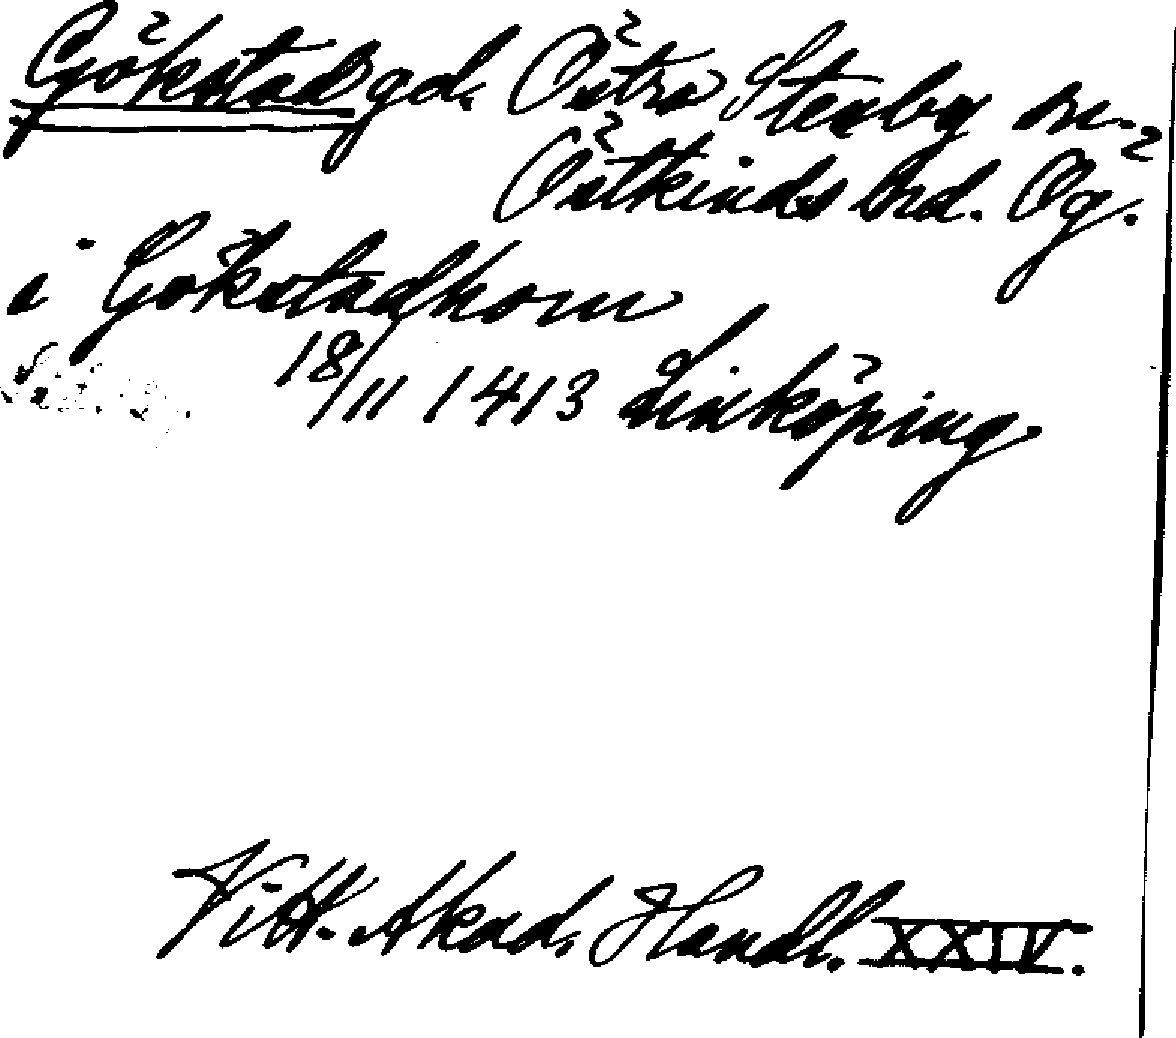 Gökstad gd. Östra Stenby sn.
Östkinds hrd. Ög.
i Gökstadhom
18/11 1413 Linköping
Vitt. Akad. Handl. XXIV.